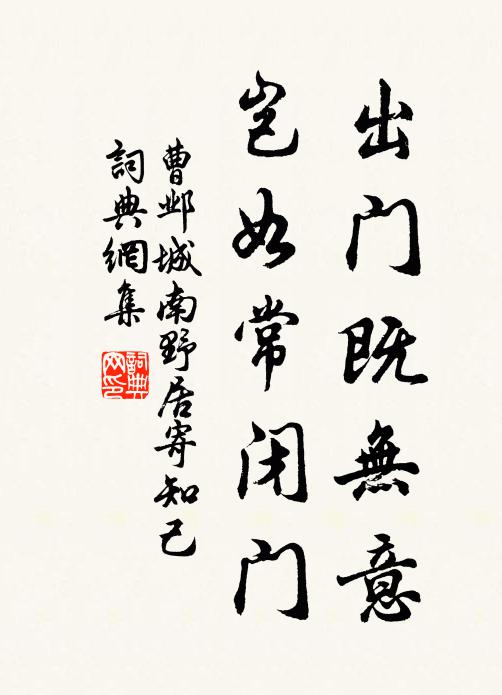 出门既無意
岂如常闭门
曹邺城南野居寄知己
詞典網集
詞典网印